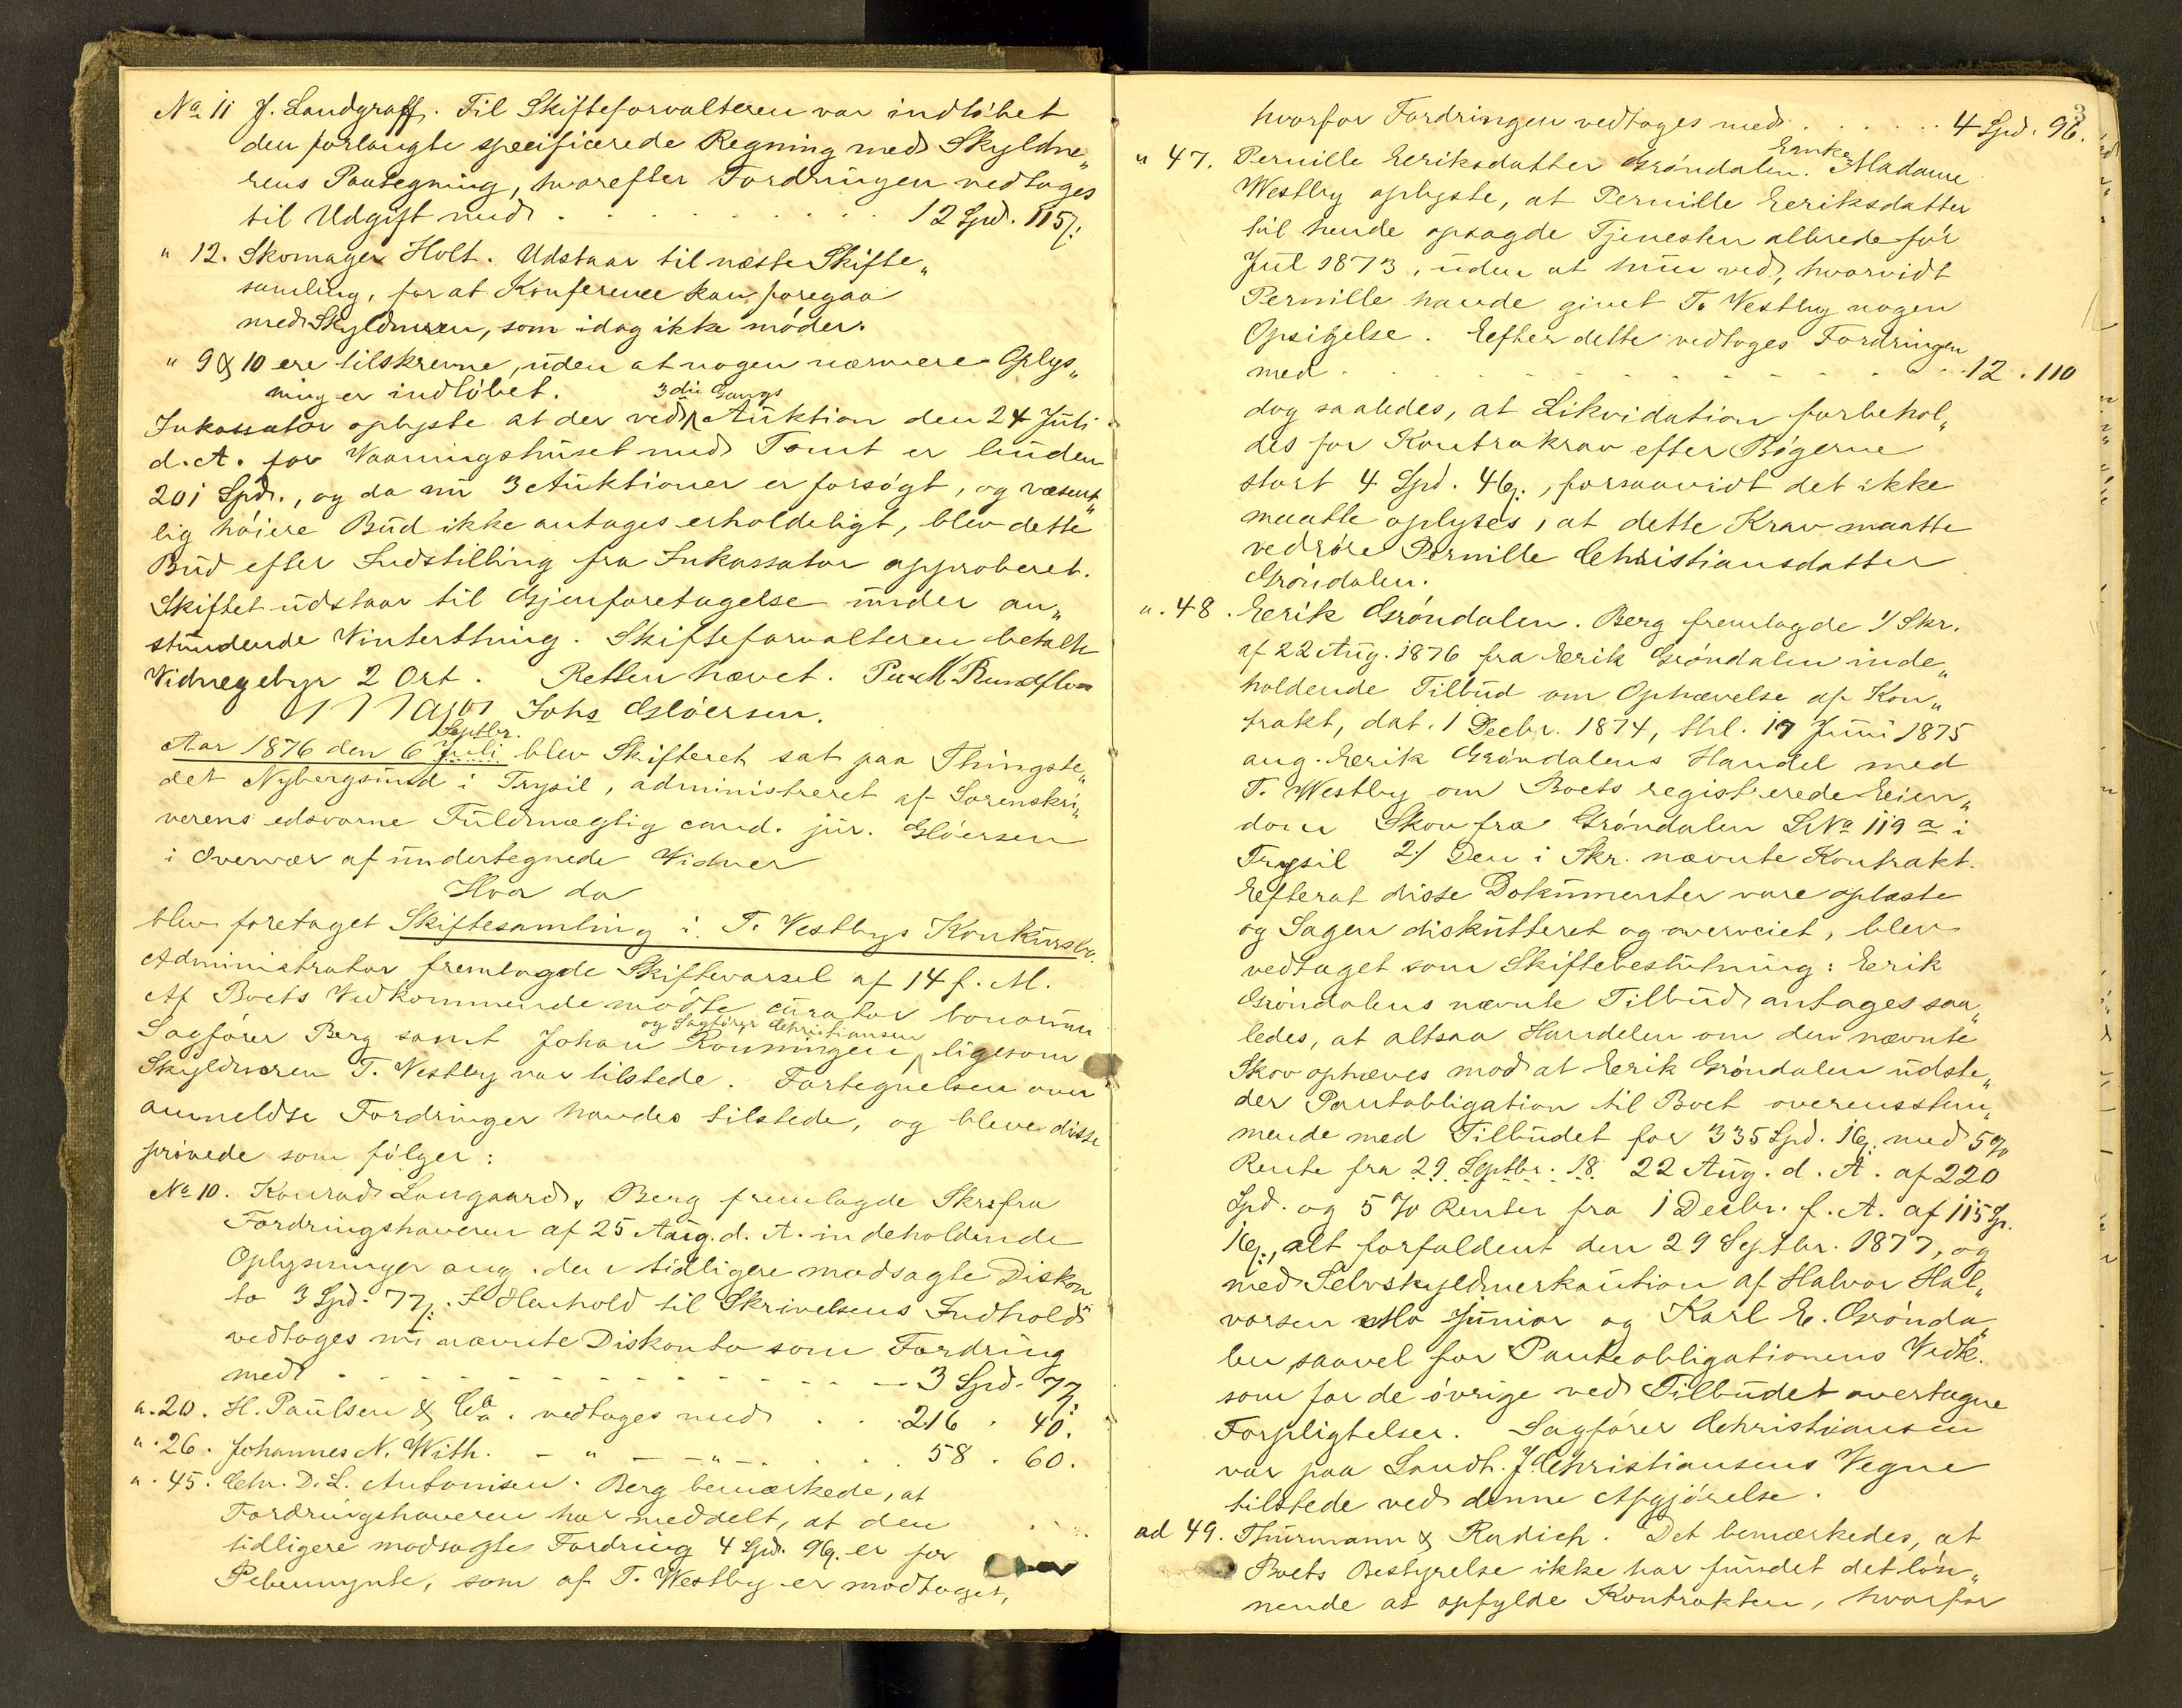 No 11 J. Landgraff. Til Skifteforvalteren var indløbet
den forlangte specificerede Regning med Skyldne„
rens Paategning, hvorefter Fordringen vedtages
til Udgift med . . . . . . . . . 12 Spd. 115ß.
" 12. Skomager Holt. Udstaar til næste Skifte„
samling, for at Konference kan foregaa
med Skyldneren, som idag ikke møder.
" 9 & 10 ere tilskrevne, uden at nogen nærmere Oplys„
ning er indløbet.
Inkassator oplyste at der ved 3die Gangs Auktion den 24 Juli
d. A. for Vaaningshuset med Tomt er buden
201 Spd., og da nu 3 Auktioner er forsøgt, og væsent„
lig høiere Bud ikke antages erholdeligt, blev dette
Bud efter Indstilling fra Inkassator approberet.
Skiftet udstaar til Gjenforetagelse under an„
stundende Vinterthing. Skifteforvalteren betalte
Vidnegebyr 2 Ort. Retten hævet. Per M. Rundfloen
Johs Gløersen.
Septbr.
Aar 1876 den 6 Juli blev Skifteret sat paa Thingste„
det Nybergsund i Trysil, administreret af Sorenskri„
verens edsvorne Fuldmægtig cand. jur. Gløersen
i Overvær af undertegnede Vidner
Hvor da
blev foretaget Skiftesamling i T. Westbys Konkursbo.
Administrator fremlagde Skiftevarsel af 14 f. M.
Af Boets Vedkommende mødte curator bonorum
og Sagfører Christiansen
Sagfører Berg samt Johan Ronningen, ligesom
Skyldneren T. Westby var tilstede. Fortegnelsen over
anmeldte Fordringer havdes tilstede, og bleve disse
prøvede som følger:
No 10. Konrad Langaard. Berg fremlagde Skr. fra
Fordringshaveren af 25 Aug. d. A. indeholdende
Oplysninger ang. den tidligere modsagte Diskon
to 3 Spd. 77ß. I Henhold til Skrivelsens Indhold
vedtages nu nævnte Diskonto som Fordring
med - - - - - - - - - - 3 Spd. 77ß.
" 20. H. Paulsen & Co. vedtages med . . . 216 . 40.
" 26. Johannes N. With. - " - - " - . . . . 58 . 60.
" 45. Chr. D. L. Antonisen. Berg bemærkede, at
Fordringshaveren har meddelt, at den
tidligere modsagte Fordring 4 Spd. 96ß. er for
Pebermynte, som af T. Westby er modtaget,
3
hvorfor Fordringen vedtages med . . . . . . 4 Spd. 96.
" 47. Pernille Eeriksdatter Grøndalen. Enke Madame
Westby oplyste, at Pernille Eeriksdatter
til hende opsagde Tjenesten allerede før
Jul 1873, uden at hun ved, hvorvidt
Pernille havde givet T. Westby nogen
Opsigelse. Eefter dette vedtages Fordringen
med . . . . . . . . . . . . 12 . 110
dog saaledes, at Likvidation forbehol„
des for Kontrakrav efter Bøgerne
stort 4 Spd. 4ß., forsaavidt det ikke
maatte oplyses, at dette Krav maatte
vedrøre Pernille Christiansdatter
Grøndalen.
". 48. Eerik Grøndalen. Berg fremlagde 1/ Skr.
af 22 Aug. 1876 fra Eerik Grøndalen inde„
holdende Tilbud om Ophævelse af Kon„
trakt, dat. 1 Decbr. 1874, thl. 17 Juni 1875
ang. Eerik Grøndalens Handel med
T. Westby om Boets registerede Eien„
dom Skov fra Grøndalen LNo 119 a i
Trysil 2/ Den i Skr. nævnte Kontrakt.
Eefterat disse Dokumenter vare oplæste
og Sagen diskutteret og overveiet, blev
vedtaget som Skiftebeslutning: Eerik
Grøndalens nævnte Tilbud antages saa„
ledes, at altsaa Handelen om den nævnte
Skov ophæves mod at Eerik Grøndalen udste„
der Pantobligation til Boet overensstem„
mende med Tilbudet for 335 Spd. 16ß. med 5%
Rente fra 29 Septbr. 18 22 Aug. d. A. af 220
Spd. og 5% Renter fra 1 Decbr. f. A. af 115 Sp.
16ß., alt forfaldent den 29 Septbr. 1877, og
med Selvskyldnerkaution af Halvor Hal„
vorsen Mo Junior og Karl E. Grønda„
len saavel for Panteobligationens Vedk.
som for de øvrige ved Tilbudet overtagne
Forpligtelser. Sagfører Christiansen
var paa Landh. J. Christiansens Vegne
tilstede ved denne Afgjørelse.
ad 49. Thurmann & Radich. Det bemærkedes, at
Boets Bestyrelse ikke har fundet det løn„
nende at opfylde Kontrakten, hvorfor